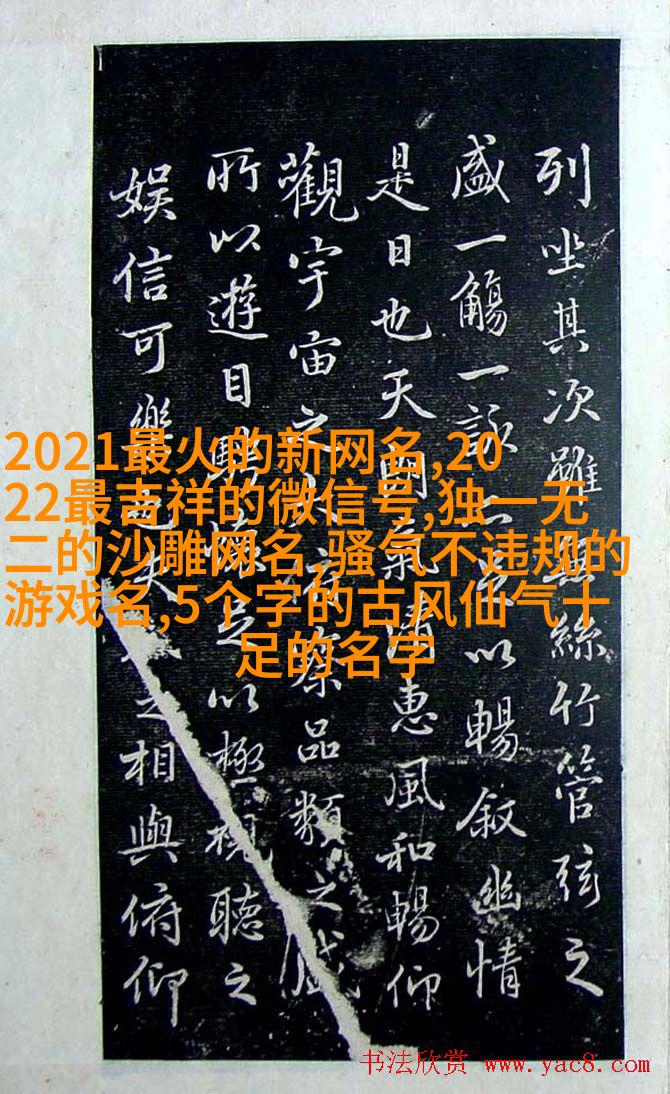 列坐其次雖無絲竹管弦之
盛一觴一詠亦足以暢叙幽情
是日也天朗氣清惠風和暢仰
觀宇宙之大俯察品類之盛
所以遊目騁懷足以極視聽之
娱信可樂也夫人之相與俯仰
2021最火的新网名,20
22最吉祥的微信号,独一无
二的沙雕网名,骚气不违规的
游戏名,5个字的古风仙气十
足的名字
书法欣赏 www.yac8.com